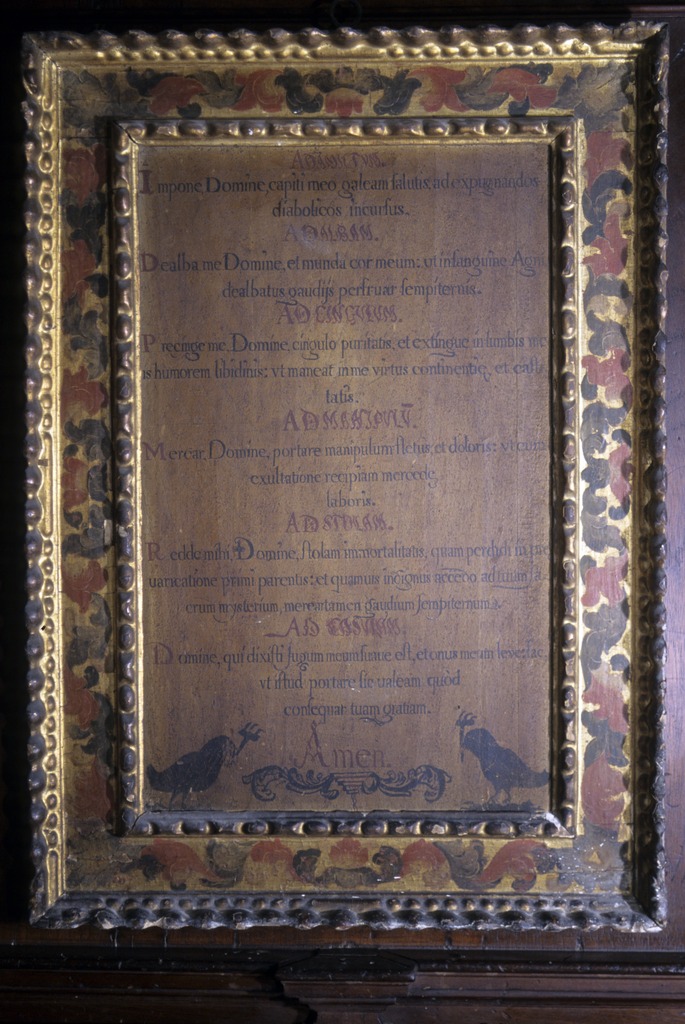 AD AMICTUM.
Impone Domine, capiti meo galeam salutis, ad expugnandos
diabolicos incursus.
AD ALBAM.
Dealba me Domine, et munda cor meum: vt in sanguine Agni
dealbatus gaudijs perfruar sempiternis.
AD CINGULUM.
Precinge me Domine, cingulo puritatis, et extingue in lumbis me
is humorem libidinis: vt maneat in me virtus continentię, et casti
tatis.
AD MANIPULŪ.
Mercar, Domine, portare manipulum fletus, et doloris: vt cum
exultatione recipiam mercede
laboris.
AD STOLAM.
Redde mihi, Domine, stolam immortalitatis, quam perdidi in pre
uaricatione primi parentis: et quamuis indignus accedo ad tuum sa
crum mysterium, merear tamen gaudium sempiternum.
AD
Domine, qui dixisti jugum meum suaue est, et onus meum leve: fac,
vt istud portare sic ualeam, quod
consequar tuam gratiam.
Amen.